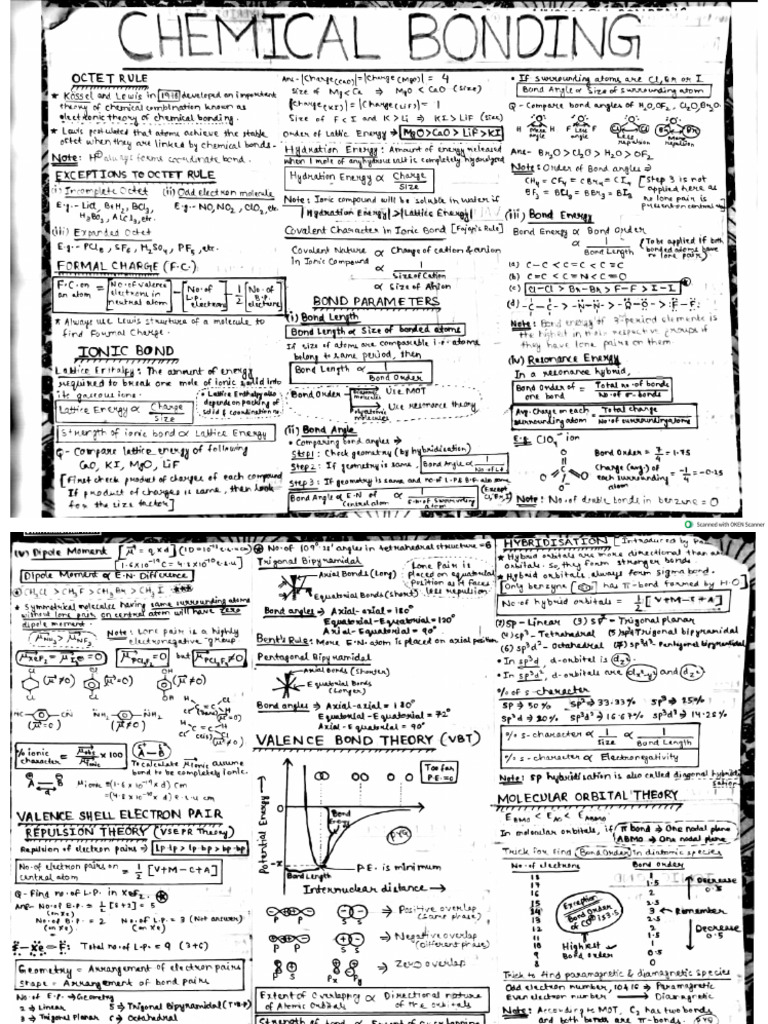 CHEMICAL BONDING
OCTET RULE
★ Kossel and Lewis in 1916 developed an important
theory of chemical combination known as
electronic theory of chemical bonding.
★ Lewis postulated that atoms achieve the stable
octet when they are linked by chemical bonds.
Note: H⊕ always forms coordinate bond.
EXCEPTIONS TO OCTET RULE
(i) Incomplete Octet (ii) Odd electron molecule
E.g.- LiCl, BeH₂, BCl₃, E.g.- NO, NO₂, ClO₂, etc.
H₃BO₃, AlCl₃, etc.
(iii) Expanded Octet
E.g.- PCl₅, SF₆, H₂SO₄, PF₅, etc.
FORMAL CHARGE (F.C.)
F.C. on an atom = No. of valence electrons in neutral atom - No. of L.P. electrons - 1/2 No. of B.P. electrons
★ Always use Lewis structure of a molecule to
find Formal Charge.
IONIC BOND
Lattice Enthalpy: The amount of energy
required to break one mole of ionic solid into
its gaseous ions.
★ Lattice Enthalpy also
depends on packing of
solid & coordination no.
Lattice Energy ∝ Charge/Size
Strength of ionic bond ∝ Lattice Energy
Q- Compare lattice energy of following
CaO, KI, MgO, LiF
[First check product of charges of each compound
If product of charges is same, then look
for the size factor]
Ans- |Charge(CaO)| = |Charge(MgO)| = 4
Size of Mg < Ca ⇒ MgO < CaO (Size)
|Charge(KI)| = |Charge(LiF)| = 1
Size of F < I and K > Li ⇒ KI > LiF (Size)
Order of Lattice Energy → MgO > CaO > LiF > KI
Hydration Energy: Amount of energy released
when 1 mole of anhydrous salt is completely hydrolysed
Hydration Energy ∝ Charge/Size
Note: Ionic compound will be soluble in water if
|Hydration Energy| > |Lattice Energy|
Covalent Character in Ionic Bond [Fajan's Rule]
Covalent Nature ∝ Charge of cation & anion
In Ionic Compound
∝ 1/Size of Cation
∝ Size of Anion
BOND PARAMETERS
(i) Bond Length
Bond Length ∝ Size of bonded atoms
If size of atoms are comparable i.e. atoms
belong to same period, then
Bond Length ∝ 1/Bond Order
Bond Order
Use MOT
Polyatomic molecules
Use resonance theory
(ii) Bond Angle
• Comparing bond angles →
Step 1: Check geometry (by hybridisation)
Step 2: If geometry is same, Bond Angle ∝ 1/No. of L.P.
Step 3: If geometry is same and no. of L.P. & B.P. also same
Bond Angle ∝ E.N. of central atom ∝ 1/E.N. of surrounding atom
(Except Cl, Br, I)
• If surrounding atoms are Cl, Br or I
Bond Angle ∝ Size of surrounding atom
Q- Compare bond angles of H₂O, OF₂, Cl₂O, Br₂O
More angle
Less angle
Less repulsion
More repulsion
Ans- Br₂O > Cl₂O > H₂O > OF₂
Note: Order of Bond angles →
CH₄ = CF₄ = CBr₄ = CI₄
BF₃ = BCl₃ = BBr₃ = BI₃
[Step 3 is not
applied here as
no lone pair is
present on central atom]
(iii) Bond Energy
Bond Energy ∝ Bond Order
∝ 1/Bond Length
(To be applied if both
bonded atoms have
no lone pair)
(a) C-C < C=C < C≡C
(b) C=C < C=N < C=O
(c) Cl-Cl > Br-Br > F-F > I-I
(d) -C-C- > -N-N- > -O-O- > :F-F:
Note: Bond energy of 3rd period elements is
the highest in their respective groups if
they have lone pairs on them.
(iv) Resonance Energy
In a resonance hybrid,
Bond Order of one bond = Total no. of bonds/No. of σ-bonds
Avg. Charge on each surrounding atom = Total charge/No. of surrounding atoms
E.g. ClO₄⊖ ion
Bond Order = 7/4 = 1.75
Charge (avg.) of
each surrounding atom = -1/4 = -0.25
Note: No. of double bonds in benzene = 0
Scanned with OKEN Scanner
(v) Dipole Moment [μ = q×d] (1D = 10⁻¹⁸ e.s.u. cm)
1.6×10⁻¹⁹ C = 4.8×10⁻¹⁰ e.s.u.
Dipole Moment ∝ E.N. Difference
★ CH₃Cl > CH₃F > CH₃Br > CH₃I ***
★ Symmetrical molecules having same surrounding atoms
without lone pair on central atom will have zero
dipole moment.
μNH₃ > μNF₃
Note: Lone pair is a highly
electronegative group
μXeF₂ = μI₃⊖ = 0
μPCl₃F₂ = 0 but μPCl₂F₃ ≠ 0
Cl Cl (μ≠0) OH OH (μ≠0)
NC CN (μ=0) NH₂ NH₂ (μ≠0)
H Cl C=C Cl H (trans) (μ=0)
H Cl C=C H Cl (cis) (μ≠0)
% ionic character = μobs/μionic × 100
A-B
To calculate μionic assume
bond to be completely ionic.
A B d
μionic = (1.6×10⁻¹⁹ × d) Cm
= (4.8×10⁻¹⁰ × d) e.s.u. cm
VALENCE SHELL ELECTRON PAIR
REPULSION THEORY (VSEPR Theory)
Repulsion of electron pairs → lp-lp > lp-bp > bp-bp
No. of electron pairs on central atom = 1/2 [V+M-C+A]
Q- Find no. of L.P. in XeF₂.
Ans- No. of E.P. = 1/2 [8+2] = 5
(on Xe)
No. of B.P. = 2 No. of L.P. = 3 (Not answer)
(on Xe) (on Xe)
:F-Xe-F: Total no. of L.P. = 9 (3+6)
Geometry = Arrangement of electron pairs
Shape = Arrangement of bond pairs
No. of E.P. → Geometry
2 → Linear 5 → Trigonal Bipyramidal (T.B.P)
3 → Trigonal Planar 6 → Octahedral
★ No. of 109°28' angles in tetrahedral structure = 6
Trigonal Bipyramidal
Axial Bonds (Long)
Equatorial Bonds (Short)
Lone Pair is
placed on equatorial
position as it faces
less repulsion
Bond angles → Axial-axial = 180°
Equatorial-Equatorial = 120°
Axial-Equatorial = 90°
Bent's Rule: More E.N. atom is placed on axial position
Pentagonal Bipyramidal
Axial Bonds (Shorter)
Equatorial Bonds
(Longer)
Bond angles → Axial-axial = 180°
Equatorial-Equatorial = 72°
Axial-Equatorial = 90°
VALENCE BOND THEORY (VBT)
Too far
P.E. = 0
Potential Energy →
0
Bond Energy
P.E. is minimum
Bond Length
Internuclear distance →
P P S S → Positive overlap
(Same phase)
P P S S → Negative overlap
(Different phase)
P S Px Py → Zero overlap
Extent of Overlapping ∝ Directional nature
of the orbitals
Strength of bond ∝ Extent of overlapping
HYBRIDISATION
★ Hybrid orbitals are more directional than
orbitals. So, they form stronger bonds.
★ Hybrid orbitals always form sigma bond.
Only benzyne has π-bond formed by H.O
No. of hybrid orbitals = 1/2 [V+M-C+A]
(2) sp - Linear (3) sp² - Trigonal planar
(4) sp³ - Tetrahedral (5) sp³d Trigonal bipyramidal
(6) sp³d² - Octahedral (7) sp³d³ Pentagonal bipyramidal
• In sp³d, d-orbital is dz²
• In sp³d², d-orbitals are dx²-y² and dz²
% of s-character
sp → 50% sp² → 33.33% sp³ → 25%
sp³d → 20% sp³d² → 16.67% sp³d³ → 14.28%
% s-character ∝ 1/Size ∝ 1/Bond Length
% s-character ∝ Electronegativity
Note: sp hybridisation is also called diagonal
MOLECULAR ORBITAL THEORY
E BMO < E AO < E ABMO
In molecular orbitals, if π bond → One nodal plane
ABMO → One nodal plane
Trick for find Bond Order in diatomic species
No. of electrons Bond Order
18 1
17 1.5
16 2
15 2.5
14 3 → Remember
13 2.5
12 2
11 1.5
10 1
9 0.5
8 0
Decrease 0.5
Decrease 0.5
Exception
Bond Order of
CO⊕ is 3.5
Highest
Bond order
Trick to find paramagnetic & diamagnetic species
Odd electron number, 10 & 16 → Paramagnetic
Even electron number → Diamagnetic
Note: According to MOT, C₂ has two bonds
and both bonds are π-bonds.